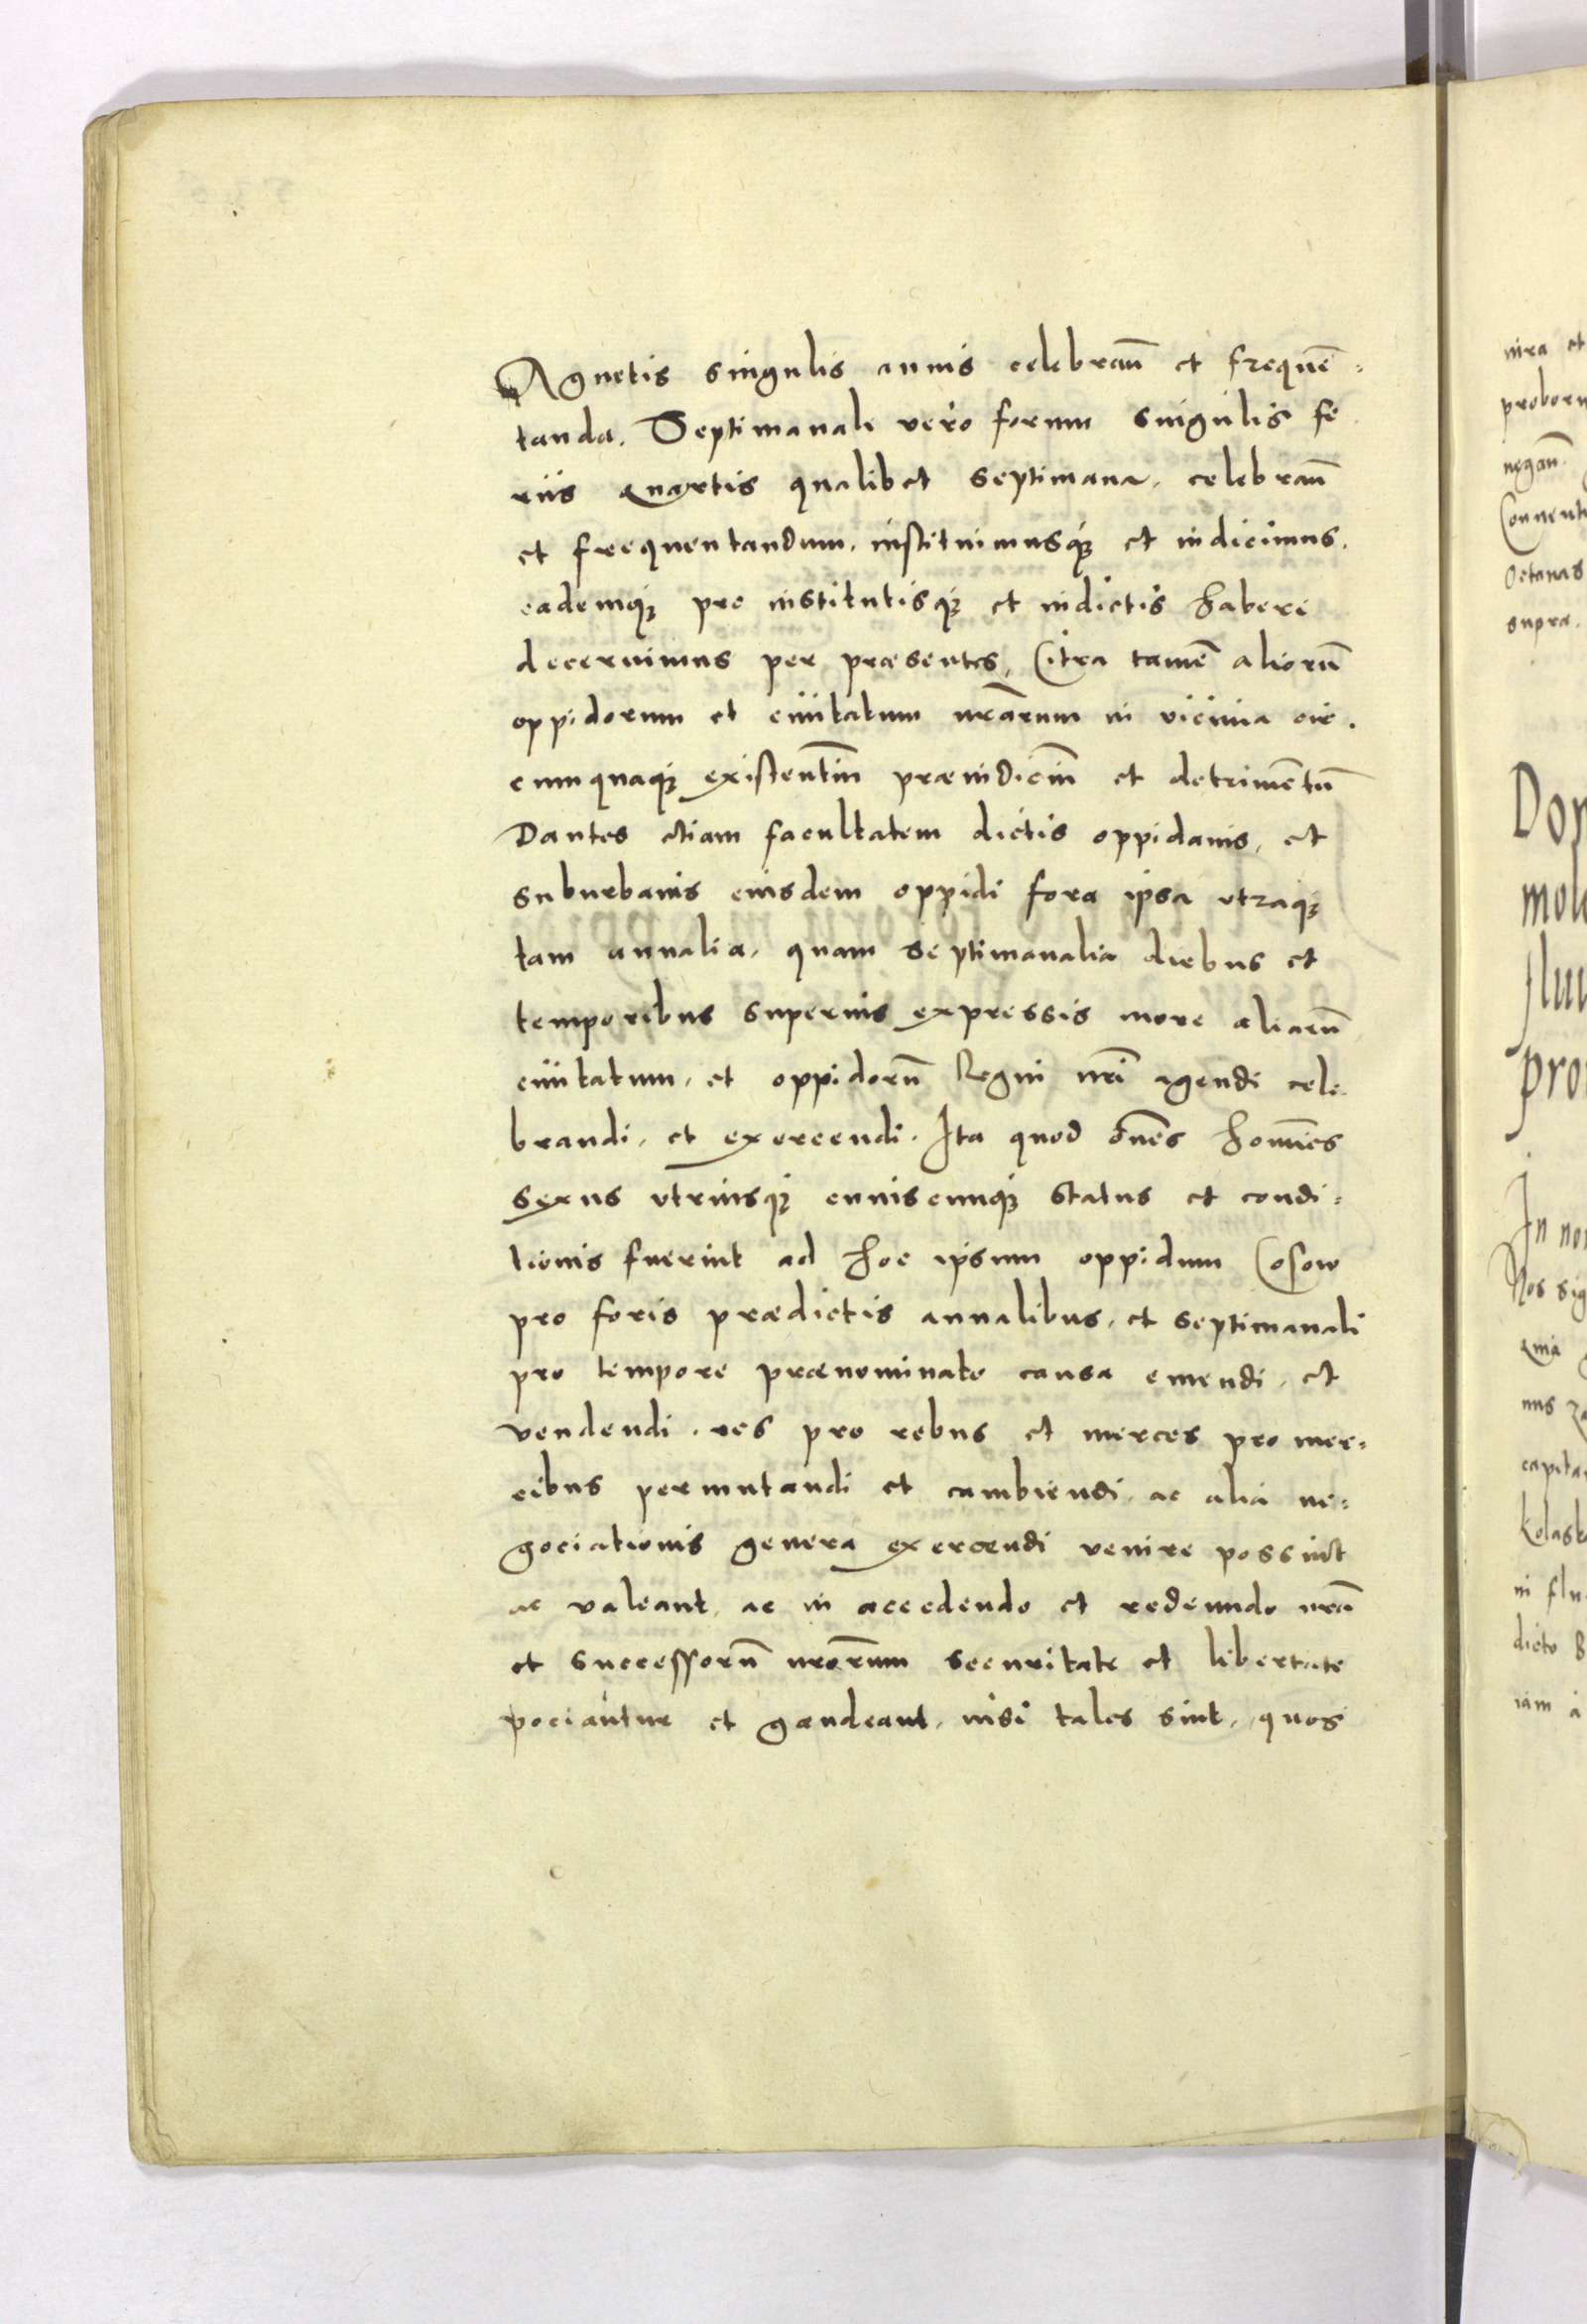 Agnetis singulis annis celebrañ et frequē=
tanda. Septimanale vero forum singulis fe
riis quartis qualibet septimana, celebrañ
et frequentandum, instituimusq; et indicimus.
eademq; pro institutisq; et indictis haberi
decernimus per præsentes, Citra tamē aliorū
oppidorum et ciuitatum nrārum in vicinia cir.
cumquaq; existentiū præiudiciū et detrimētū
Dantes etiam facultatem dictis oppidanis, et
suburbanis eiusdem oppidi fora ipsa vtraq;
tam annalia, quam septimanalia diebus et
temporibus superius expressis more aliarū
ciuitatum, et oppidorū Regni nrī agendi cele
brandi, et exercendi. Ita quod ōnes homīes
sexus vtriusq; cuiuscunq; status et condi=
tionis fuerint ad hoc ipsum oppidum Cosow
pro foris prædictis annalibus, et septimanali
pro tempore prænominato causa emendi, et
vendendi, res pro rebus et merces pro mer=
cibus permutandi et cambiendi, ac alia ne=
gociationis genera exercendi venire possint
ac valeant, ac in accedendo et redeundo nrā
et successorū nrōrum securitate et libertate
pociantur et gaudeant, nisi tales sint, quos
nira et
negañ
Octauas
supra.
Dom
flui
pro
In nom
Nos sig
quia
capita
in flu
dicto B
iam a